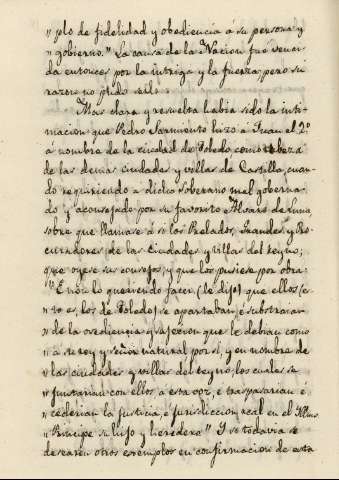 "plo de fidelidad y obediencia á su persona y
"govierno." La causa de la Nacion fué venci-
da entonces por la intriga y la fuerza, pero su
razon no pudo serlo.
Mas clara y resuelta habia sido la inti-
macion que Pedro Sarmiento hizo a Juan el 2º
á nombre de la ciudad de Toledo, como cabeza
de las demas ciudades y villas de Castilla, cuan-
do requiriendo a dicho soberano mal goberna-
do y aconsejado por su favorito Alvaro de Luna,
sobre que llamase á sí los Prelados, Grandes y Pro-
curadores de las Ciudades y villas del reyno,
que oyese sus consejos, y que los pusiese por obra:
"E non lo queriendo facer (le dijo) que ellos (es-
"to es, los de Toledo) se apartaban é substraian
"de la obediencia y sujecion que le debian como
"a su rey y señor natural por sí, y en nombre de
"las ciudades y villas del reyno, los cuales se
"juntarian con ellos á esta voz, é traspasarian é
"cederian la justicia, é jurisdiccion real en el Illmo.
"Principe su hijo y heredero." Y si todavia se
deseáren otros exemplos en confirmacion de esta